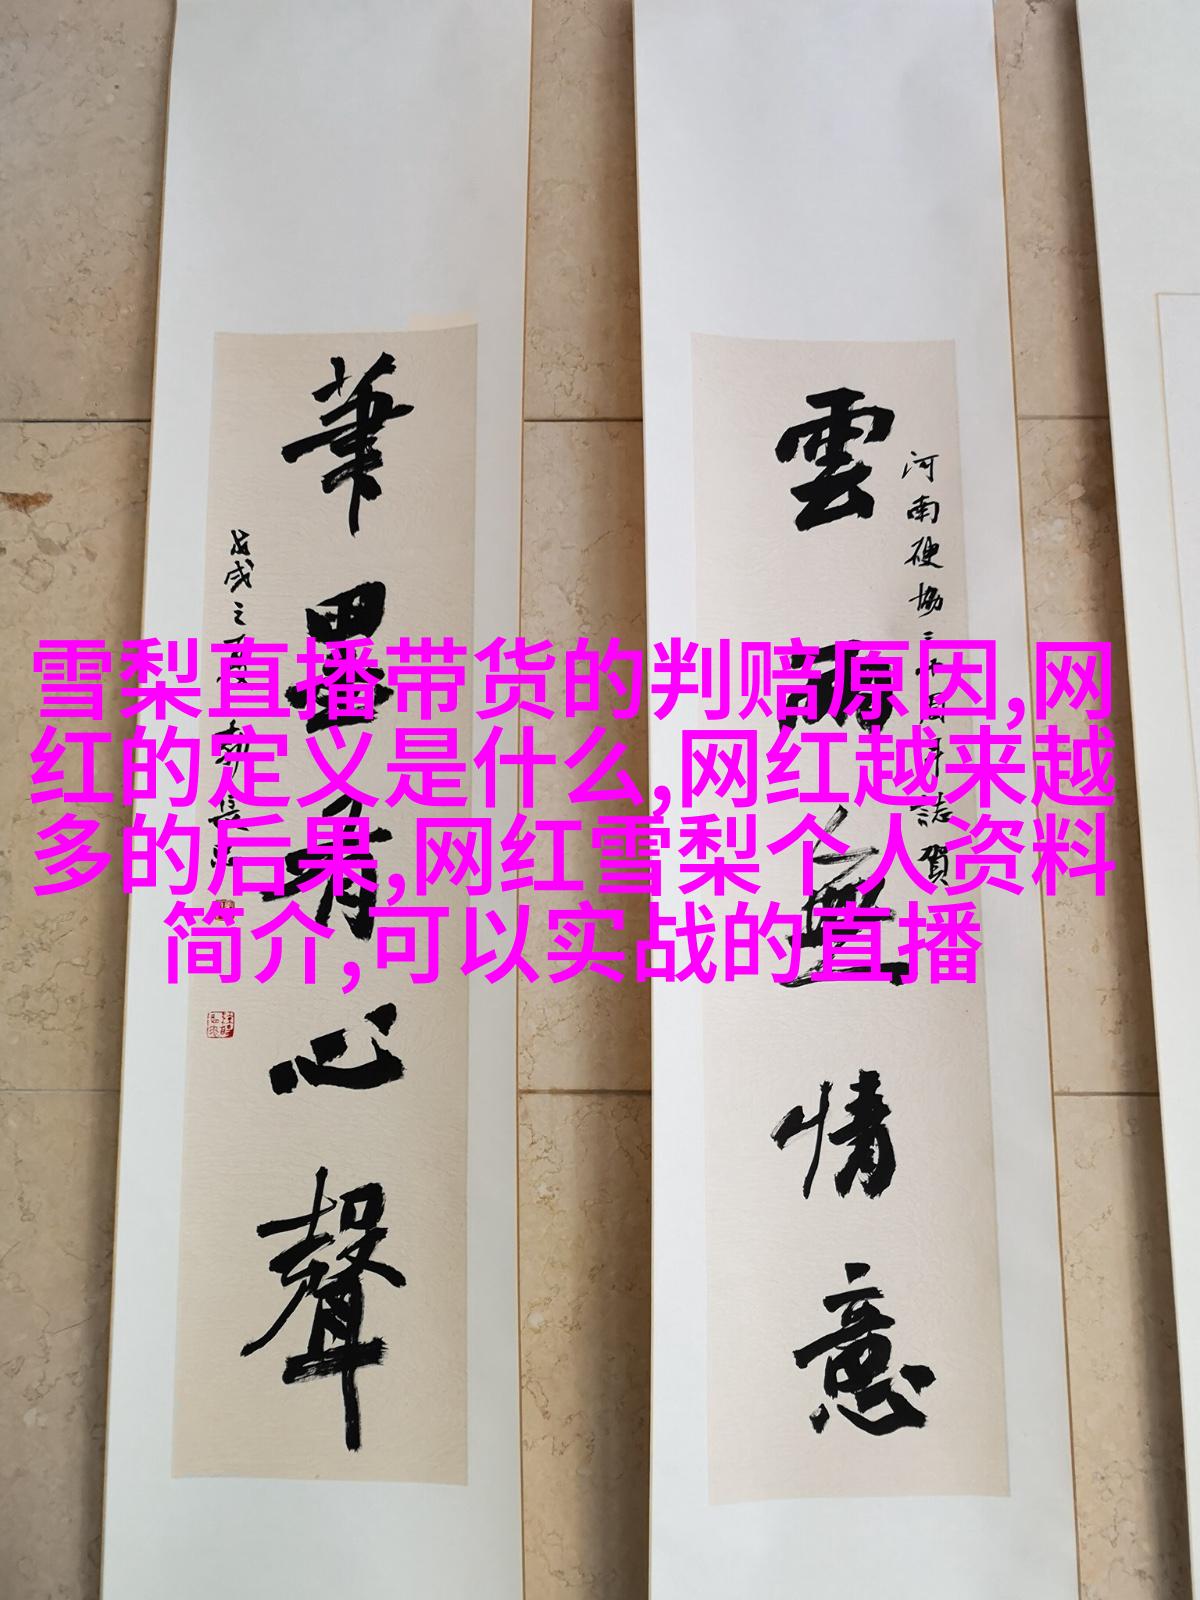 雪梨直播带货的判赔原因,网
红的定义是什么,网红越来越
多的后果,网红雪梨个人资料
简介,可以实战的直播
雲雨無情意
河南硬協三十周年誌賀
筆墨有心聲
戊戌之夏